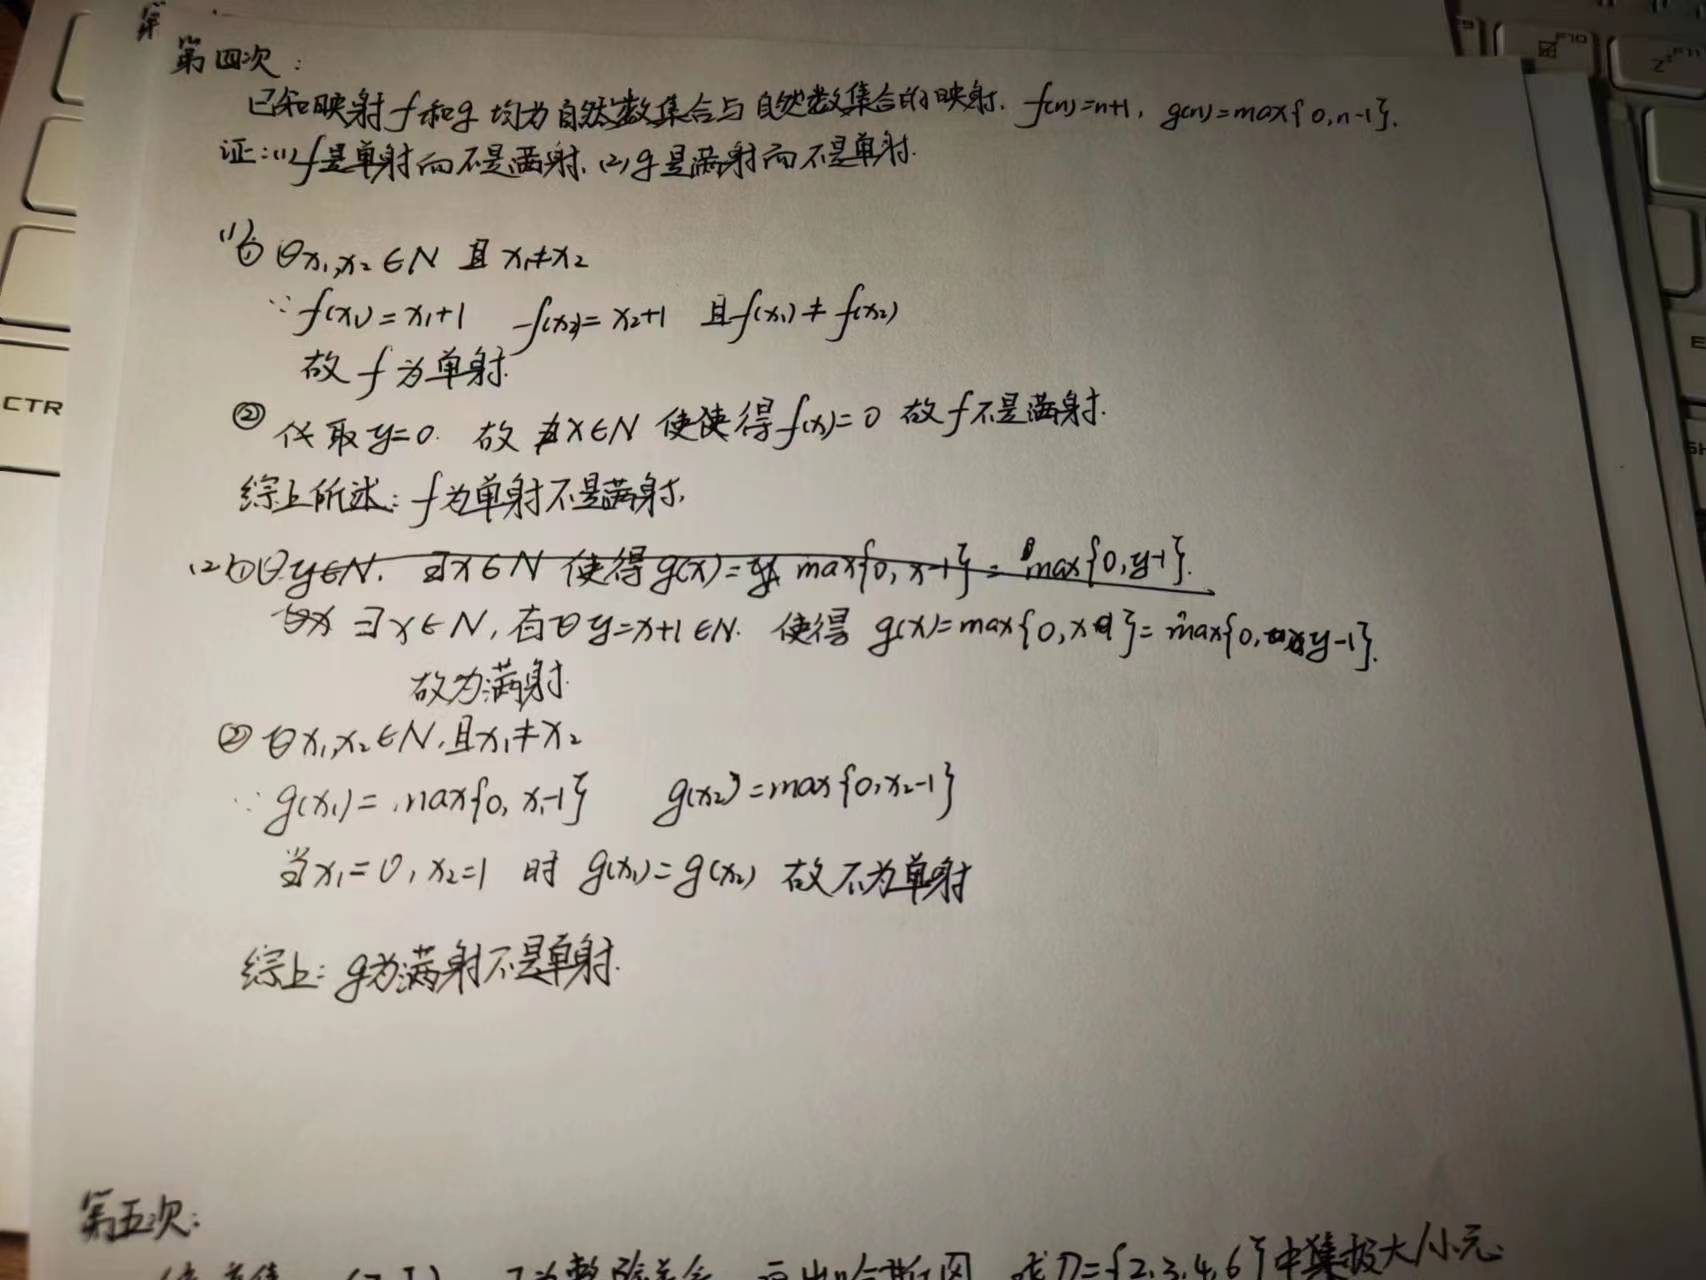 第四次:
已知映射f和g均为自然数集合与自然数集合的映射. f(n)=n+1, g(n)=max{0,n-1}.
证:(1)f是单射而不是满射.(2)g是满射而不是单射.
(1)① ∀x₁,x₂∈N 且 x₁≠x₂
∵f(x₁)=x₁+1 f(x₂)=x₂+1 且f(x₁)≠f(x₂)
故f为单射.
② 取y=0. 故 x∈N 使使得f(x)=0 故f不是满射.
综上所述:f为单射不是满射.
(2)①∀y∈N. ∃x∈N 使得g(x)=y max{0,x-1}=max{0,y-1}.
∃x∈N,有∀y=x+1∈N. 使得 g(x)=max{0,x }=max{0, y-1}.
故为满射.
② ∀x₁,x₂∈N,且x₁≠x₂
∵g(x₁)=max{0,x₁-1} g(x₂)=max{0,x₂-1}
当x₁=0,x₂=1 时 g(x₁)=g(x₂) 故不为单射
综上:g为满射不是单射.
第五次:
为整除关系 D={2,3,4,6}中集极大/小元.
CTR
F10
F11